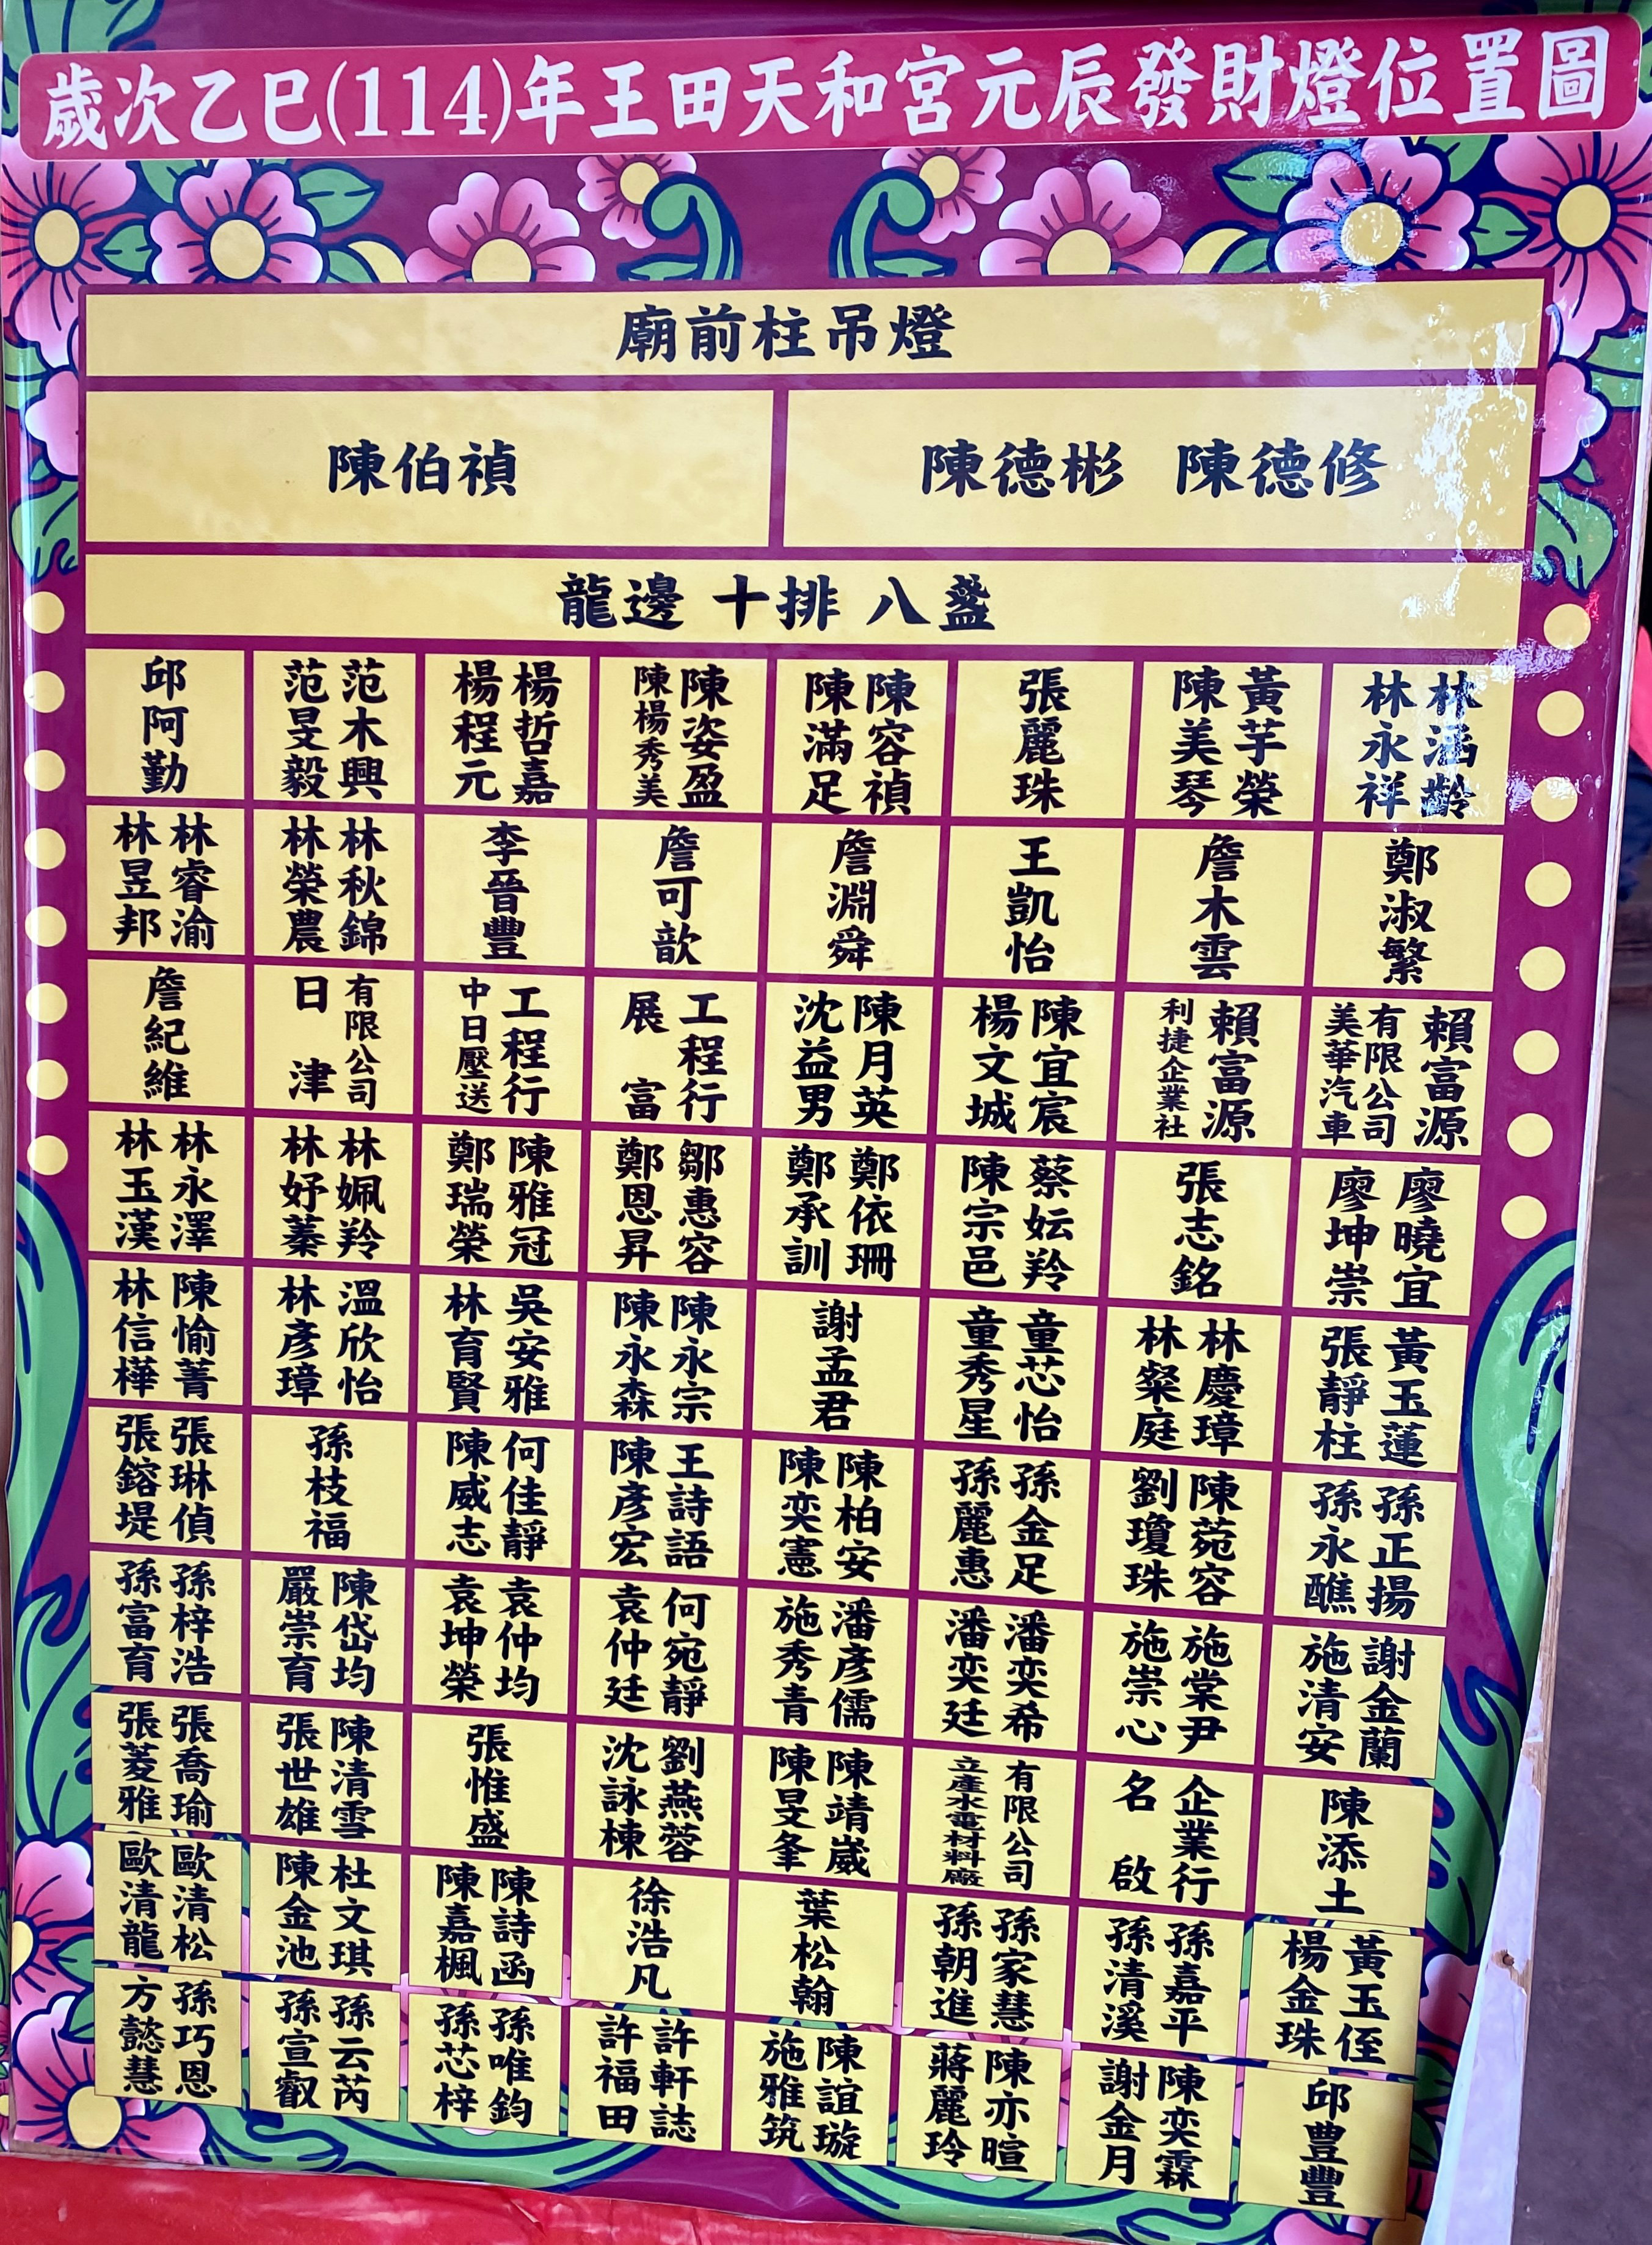 歲次乙巳(114)年王田天和宮元辰發財燈位置圖
廟前柱吊燈
陳伯禎
陳德彬 陳德修
龍邊 十排 八盞
林涵齡
林永祥
黃芋榮
陳美琴
張麗珠
陳容禎
陳滿足
陳姿盈
陳楊秀美
楊哲嘉
楊程元
范木興
范旻毅
邱阿勤
鄭淑繁
詹木雲
王凱怡
詹淵舜
詹可歆
李晉豐
林秋錦
林榮農
林睿渝
林昱邦
賴富源
有限公司
美華汽車
賴富源
利捷企業社
陳宜宸
楊文城
陳月英
沈益男
工程行
展富
工程行
中日壓送
有限公司
日津
詹紀維
廖曉宜
廖坤崇
張志銘
蔡妘羚
陳宗邑
鄭依珊
鄭承訓
鄒惠容
鄭恩昇
陳雅冠
鄭瑞榮
林姵羚
林妤蓁
林永澤
林玉漢
黃玉蓮
張靜柱
林慶璋
林粲庭
童芯怡
童秀星
謝孟君
陳永宗
陳永森
吳安雅
林育賢
溫欣怡
林彥璋
陳愉菁
林信樺
孫正揚
孫永醮
陳菀容
劉瓊珠
孫金足
孫麗惠
陳柏安
陳奕憲
王詩語
陳彥宏
何佳靜
陳威志
孫枝福
張琳偵
張鎔堤
謝金蘭
施清安
施棠尹
施崇心
潘奕希
潘奕廷
潘彥儒
施秀青
何宛靜
袁仲廷
袁仲均
袁坤榮
陳岱均
嚴崇育
孫梓浩
孫富育
陳添土
企業行
名啟
有限公司
立產水電材料廠
陳靖崴
陳旻夆
劉燕蓉
沈詠棟
張惟盛
陳清雪
張世雄
張喬瑜
張菱雅
黃玉侄
楊金珠
孫嘉平
孫清溪
孫家慧
孫朝進
葉松翰
徐浩凡
陳詩函
陳嘉楓
杜文琪
陳金池
歐清松
歐清龍
邱豊豐
陳奕霖
謝金月
陳亦暄
蔣麗玲
陳誼璇
施雅筑
許軒誌
許福田
孫唯鈞
孫芯梓
孫云芮
孫宣叡
孫巧恩
方懿慧